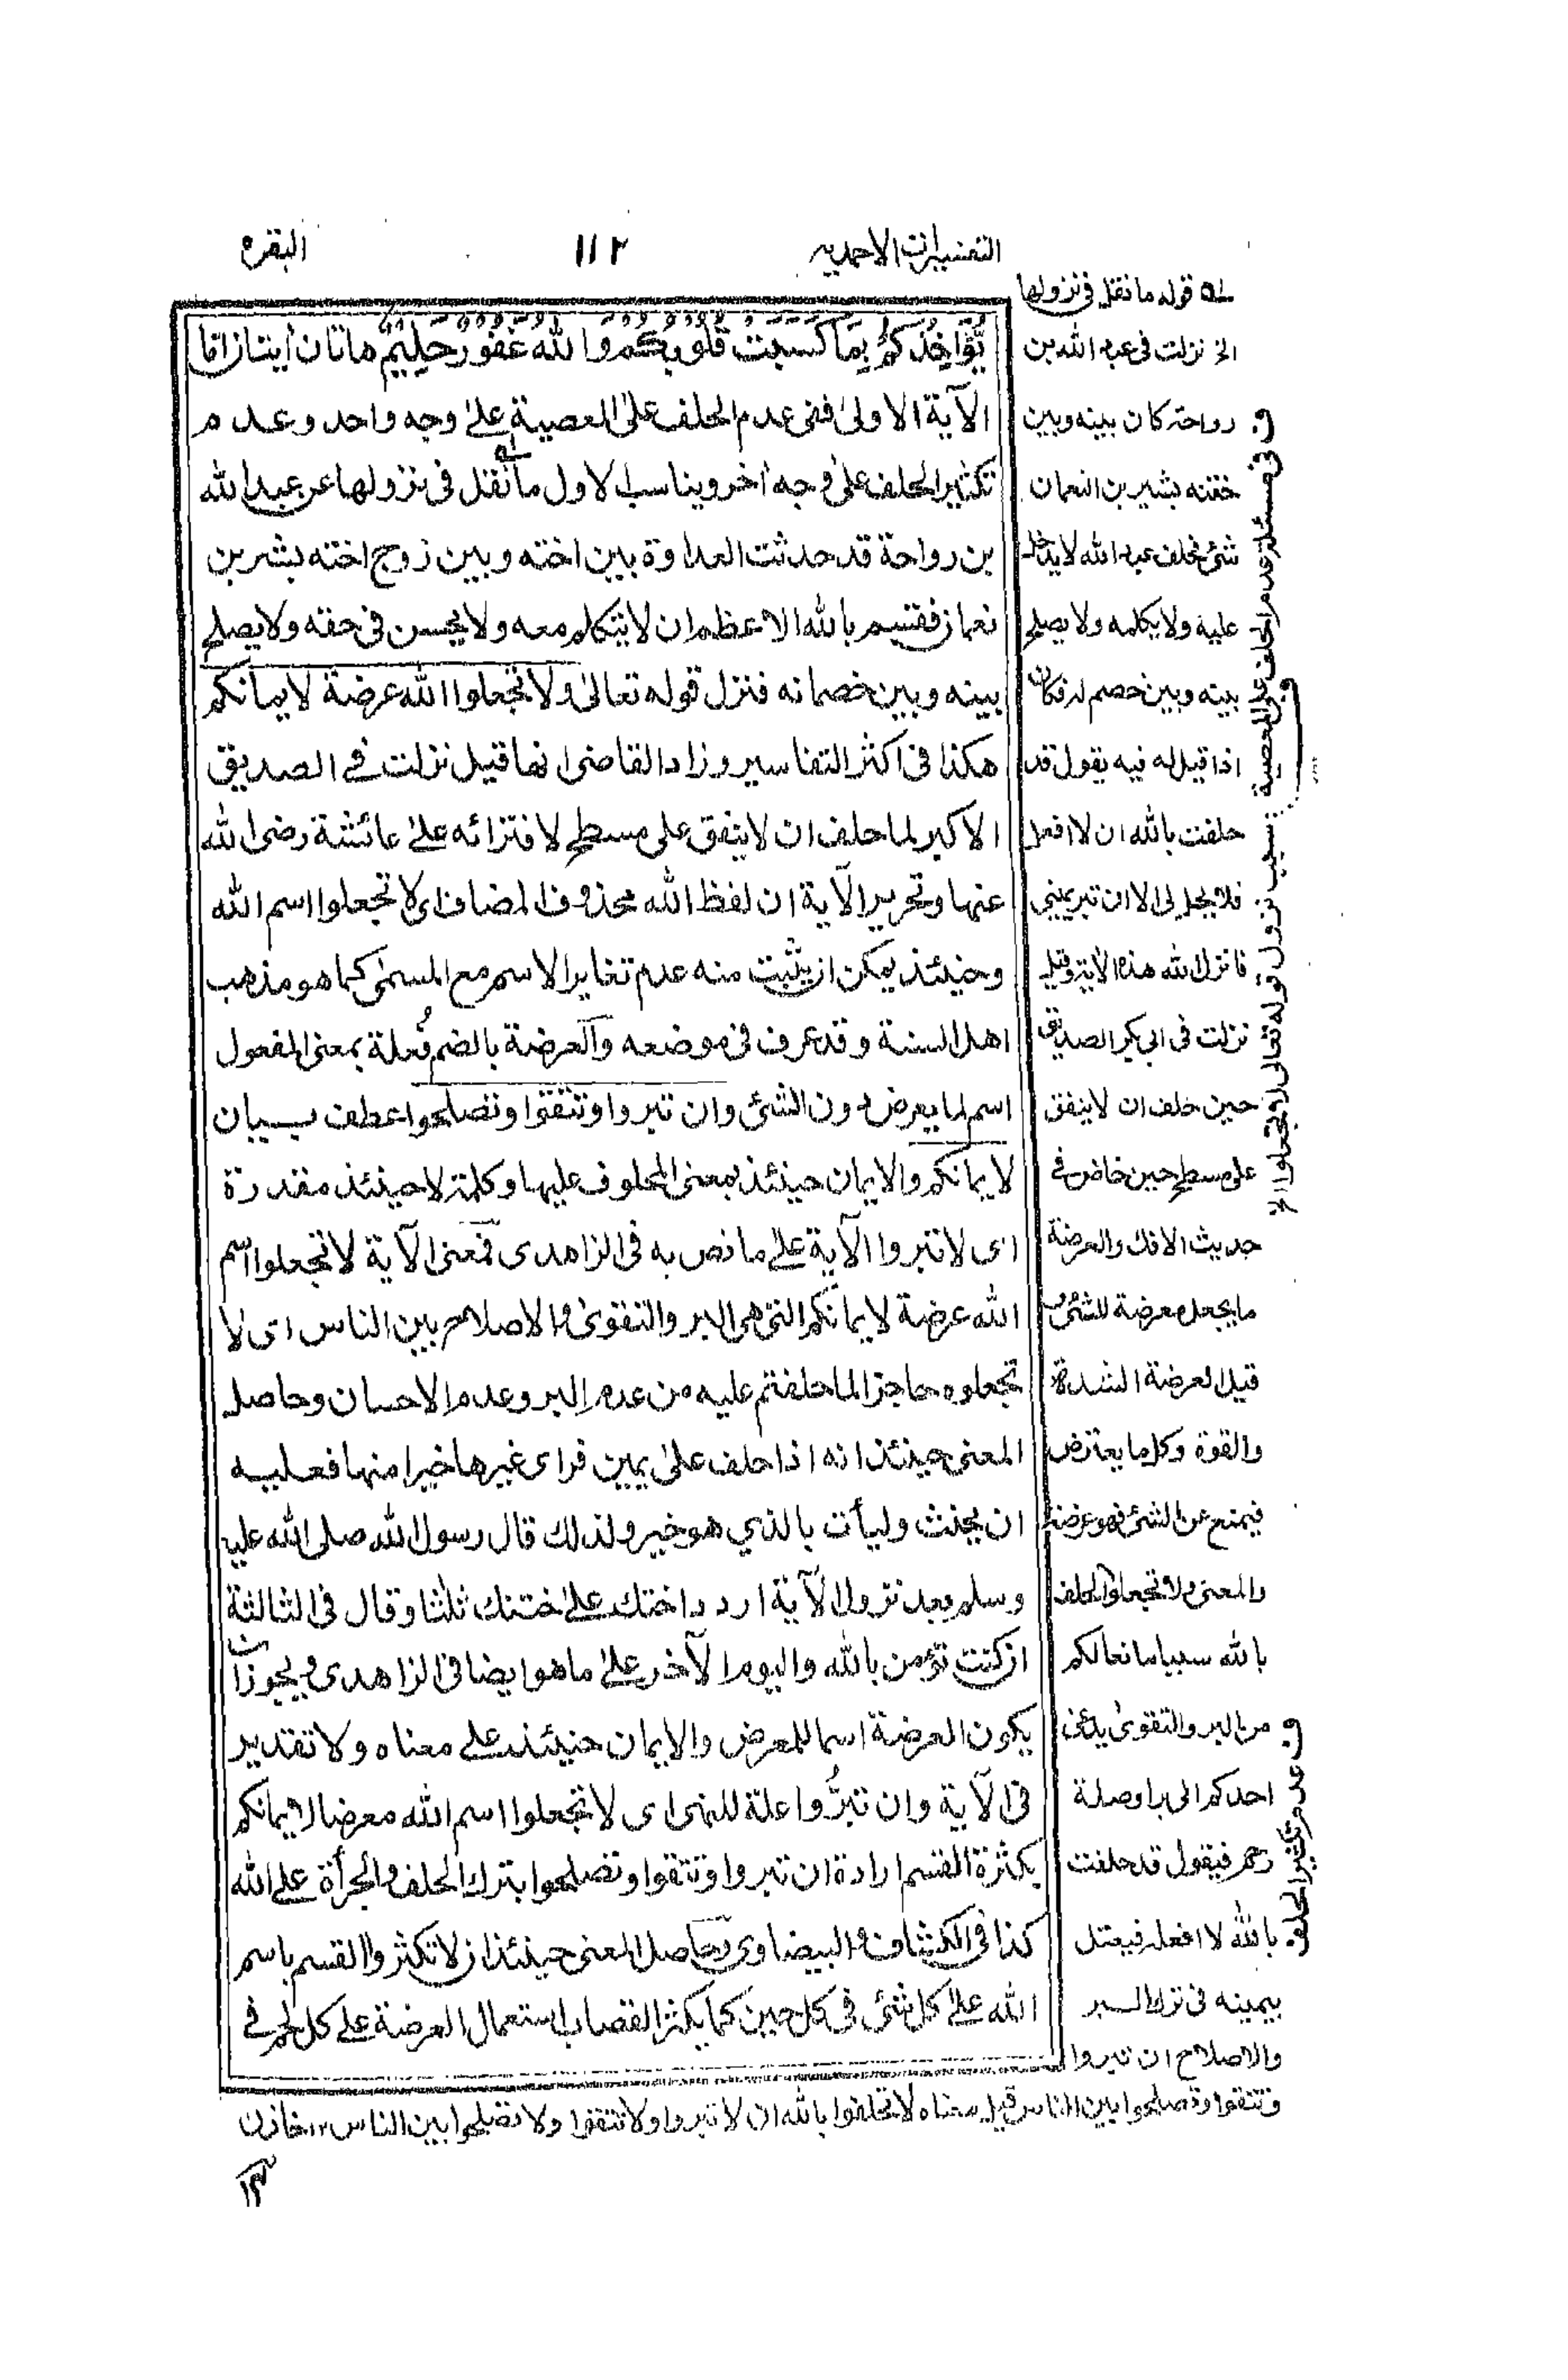 التفسيرات الاحمديه
١١٢
البقره
يُّؤَاخِذُكُمْ بِمَا كَسَبَتْ قُلُوبُكُمْ وَاللّٰهُ غَفُورٌ حَلِيْمٌ هاتان اٰيتان اما
الآية الاولىٰ ففى عدم الحلف علىٰ المعصية علىٰ وجه واحد وعدم
تكثير الحلف علىٰ وجه اٰخر ويناسب الاول ما نقل فى نزولها عن عبد الله
بن رواحة قد حدثت العداوة بين اخته وبين زوج اخته بشر بن
نعمان فقسم بالله الاعظم ان لا يتكلم معه ولا يحسن فى حقه ولا يصلح
بينه وبين خصمانه فنزل قوله تعالىٰ ولا تجعلوا الله عرضة لايمانكم
هكذا فى اكثر التفاسير وزاد القاضى انها قيل نزلت فى الصديق
الاكبر لما حلف ان لا ينفق على مسطح لافترائه علىٰ عائشة رضى الله
عنها وتحرير الآية ان لفظ الله محذوف المضاف اى لا تجعلوا اسم الله
وحينئذ يمكن ان يثبت منه عدم تغاير الاسم مع المسمىٰ كما هو مذهب
اهل السنة وقد عرف فى موضعه والعرضة بالضم فُعلة بمعنى المفعول
اسم لما يعرض دون الشئ وان تبروا وتتقوا وتصلحوا عطف بيان
لايمانكم والايمان حينئذ بمعنى المحلوف عليها وكلمة لا حينئذ مقدرة
اى لا تبروا الآية علىٰ ما نص به فى الزاهدى فمعنى الآية لا تجعلوا اسم
الله عرضة لايمانكم التى هى البر والتقوىٰ والاصلاح بين الناس اى لا
تجعلوه حاجزا لما حلفتم عليه من عدم البر وعدم الاحسان وحاصل
المعنى حينئذ انه اذا حلف علىٰ يمين فراى غيرها خيرا منها فعليه
ان يحنث وليأت بالذي هو خير ولذلك قال رسول الله صلى الله عليه
وسلم بعد نزول الآية اردد اختك علىٰ ختنك ثلثا وقال فى الثالثة
ان كنت تؤمن بالله واليوم الآخر علىٰ ما هو ايضا فى الزاهدى ويجوز ان
يكون العرضة اسما للمعرض والايمان حينئذ على معناه ولا تقدير
فى الآية وان تبرُّوا علة للنهى اى لا تجعلوا اسم الله معرضا لايمانكم
بكثرة القسم ارادة ان تبروا وتتقوا وتصلحوا بترك الحلف والجرأة على الله
كذا فى الكشاف والبيضاوى وحاصل المعنى حينئذ ان لا تكثروا القسم باسم
الله علىٰ كل شئ فى كل حين كما يكثر القصاب استعمال العرضة على كل لحم فى
له قوله ما نقل فى نزولها
الخ نزلت فى عبد الله بن
رواحة كان بينه وبين
ختنه بشير بن النعمان
شئ فحلف عبد الله لا يدخل
عليه ولا يكلمه ولا يصلح
بينه وبين خصم له فكان
اذا قيل له فيه يقول قد
حلفت بالله ان لا افعل
فلا يحل لى الا ان تبر يمينى
فانزل الله هذه الآية وقيل
نزلت فى ابى بكر الصديق
حين حلف ان لا ينفق
على مسطح حين خاض فى
حديث الافك والعرضة
ما يجعل معرضة للشئ و
قيل العرضة الشدة
والقوة وكل ما يعترض
فيمنع عن الشئ فهو عرضة
والمعنى ولا تجعلوا الحلف
بالله سببا مانعا لكم
من البر والتقوىٰ يدعى
احدكم الى بر او صلة
رحم فيقول قد حلفت
بالله لا افعله فيعتل
بيمينه فى ترك البر
والاصلاح ان تبروا
وتتقوا وتصلحوا بين الناس قيل معناه لا تحلفوا بالله ان لا تبروا ولا تتقوا ولا تصلحوا بين الناس ١٢ خازن
ف فى مسئلة عدم الحلف على المعصية
سبب نزول قوله تعالى ولا تجعلوا الخ
ف عدم تكثير الحلف